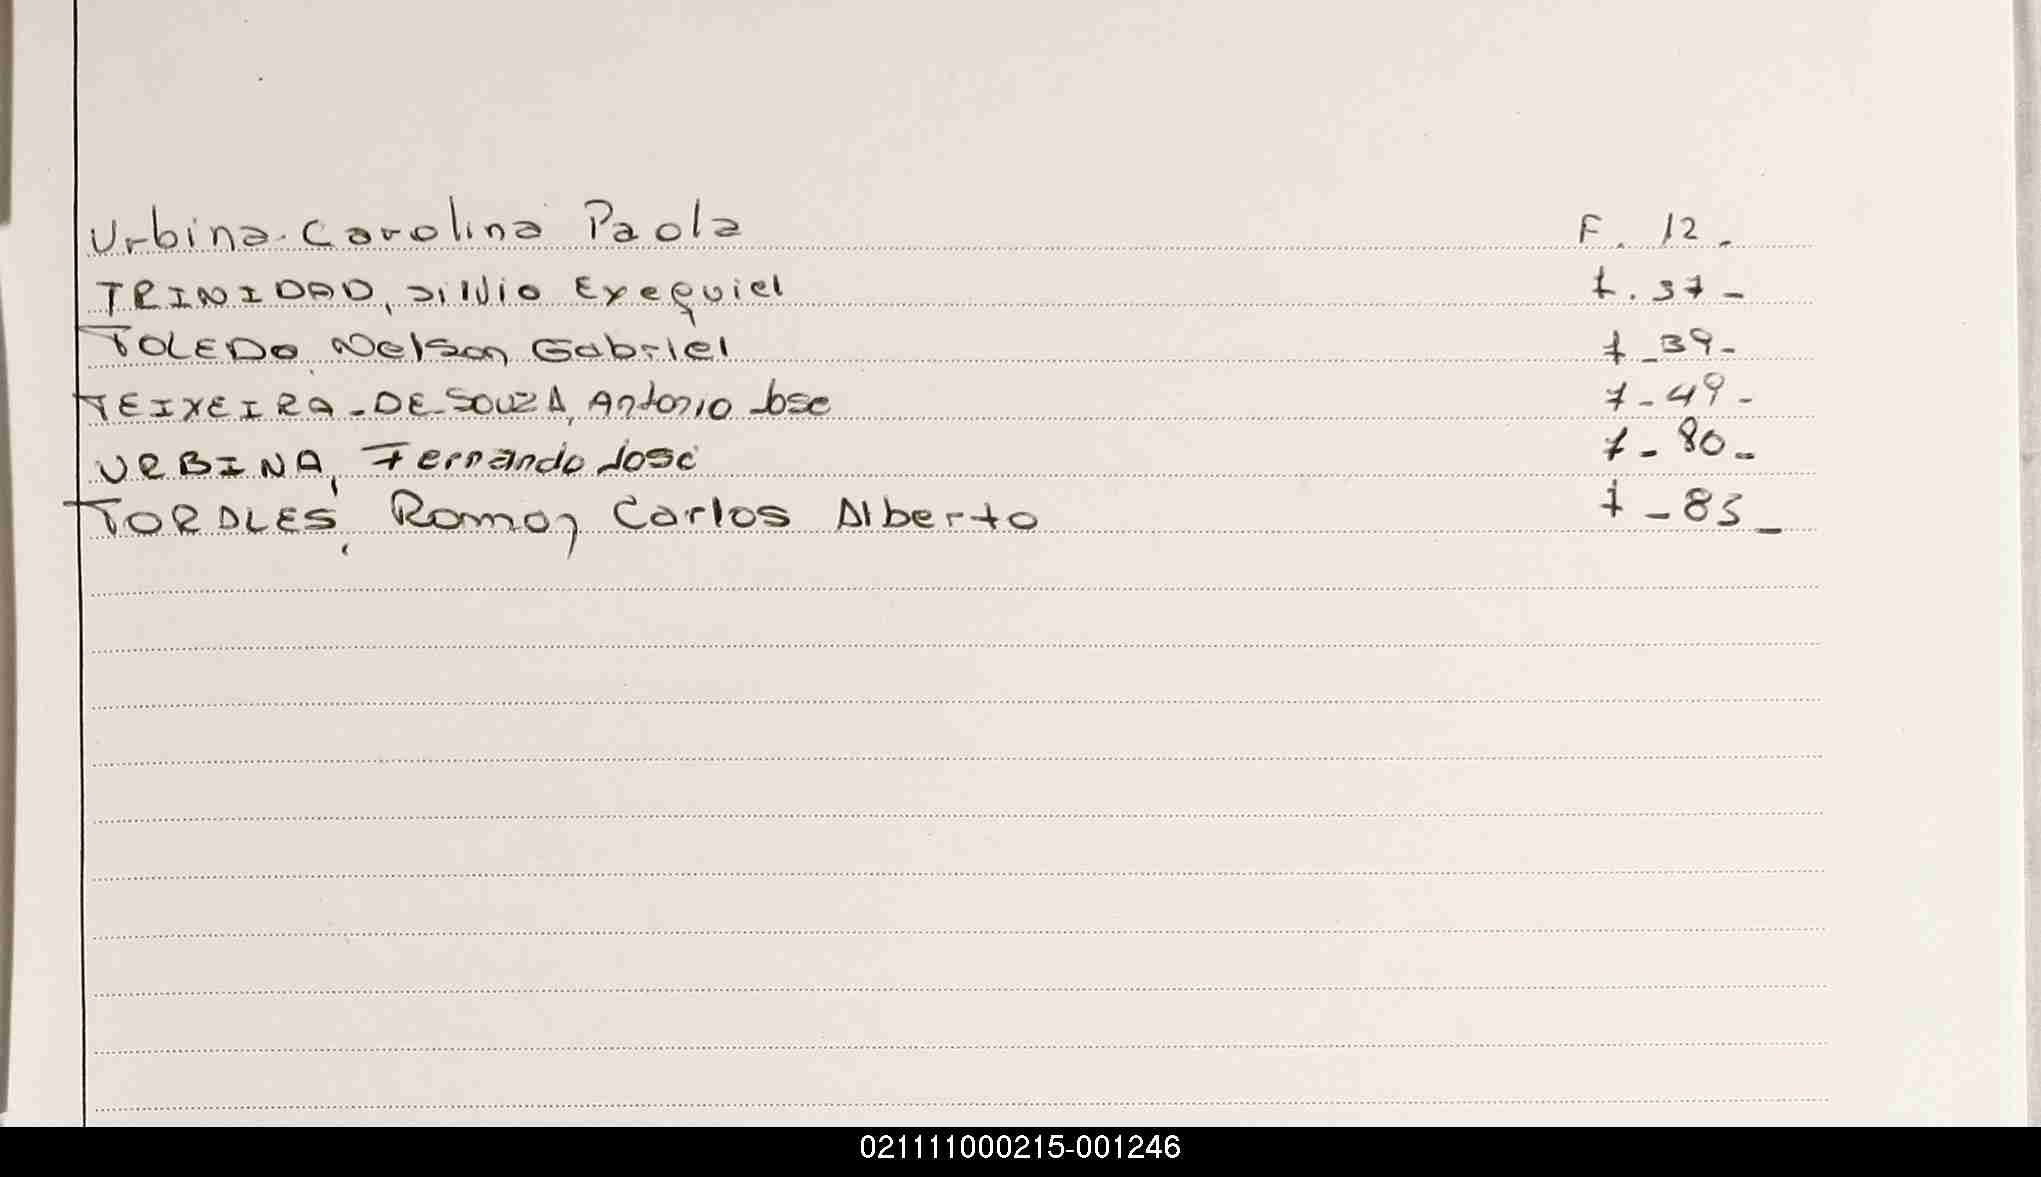 Urbina. Carolina Paola F. 12.
TRINIDAD, Silvio Exequiel f. 37-
TOLEDO Nelson Gabriel f-39-
TEIXEIRA-DE-SOUZA, Antonio Jose f-49-
URBINA, Fernando José f-80-
TORALES, Ramon Carlos Alberto f-83-
021111000215-001246